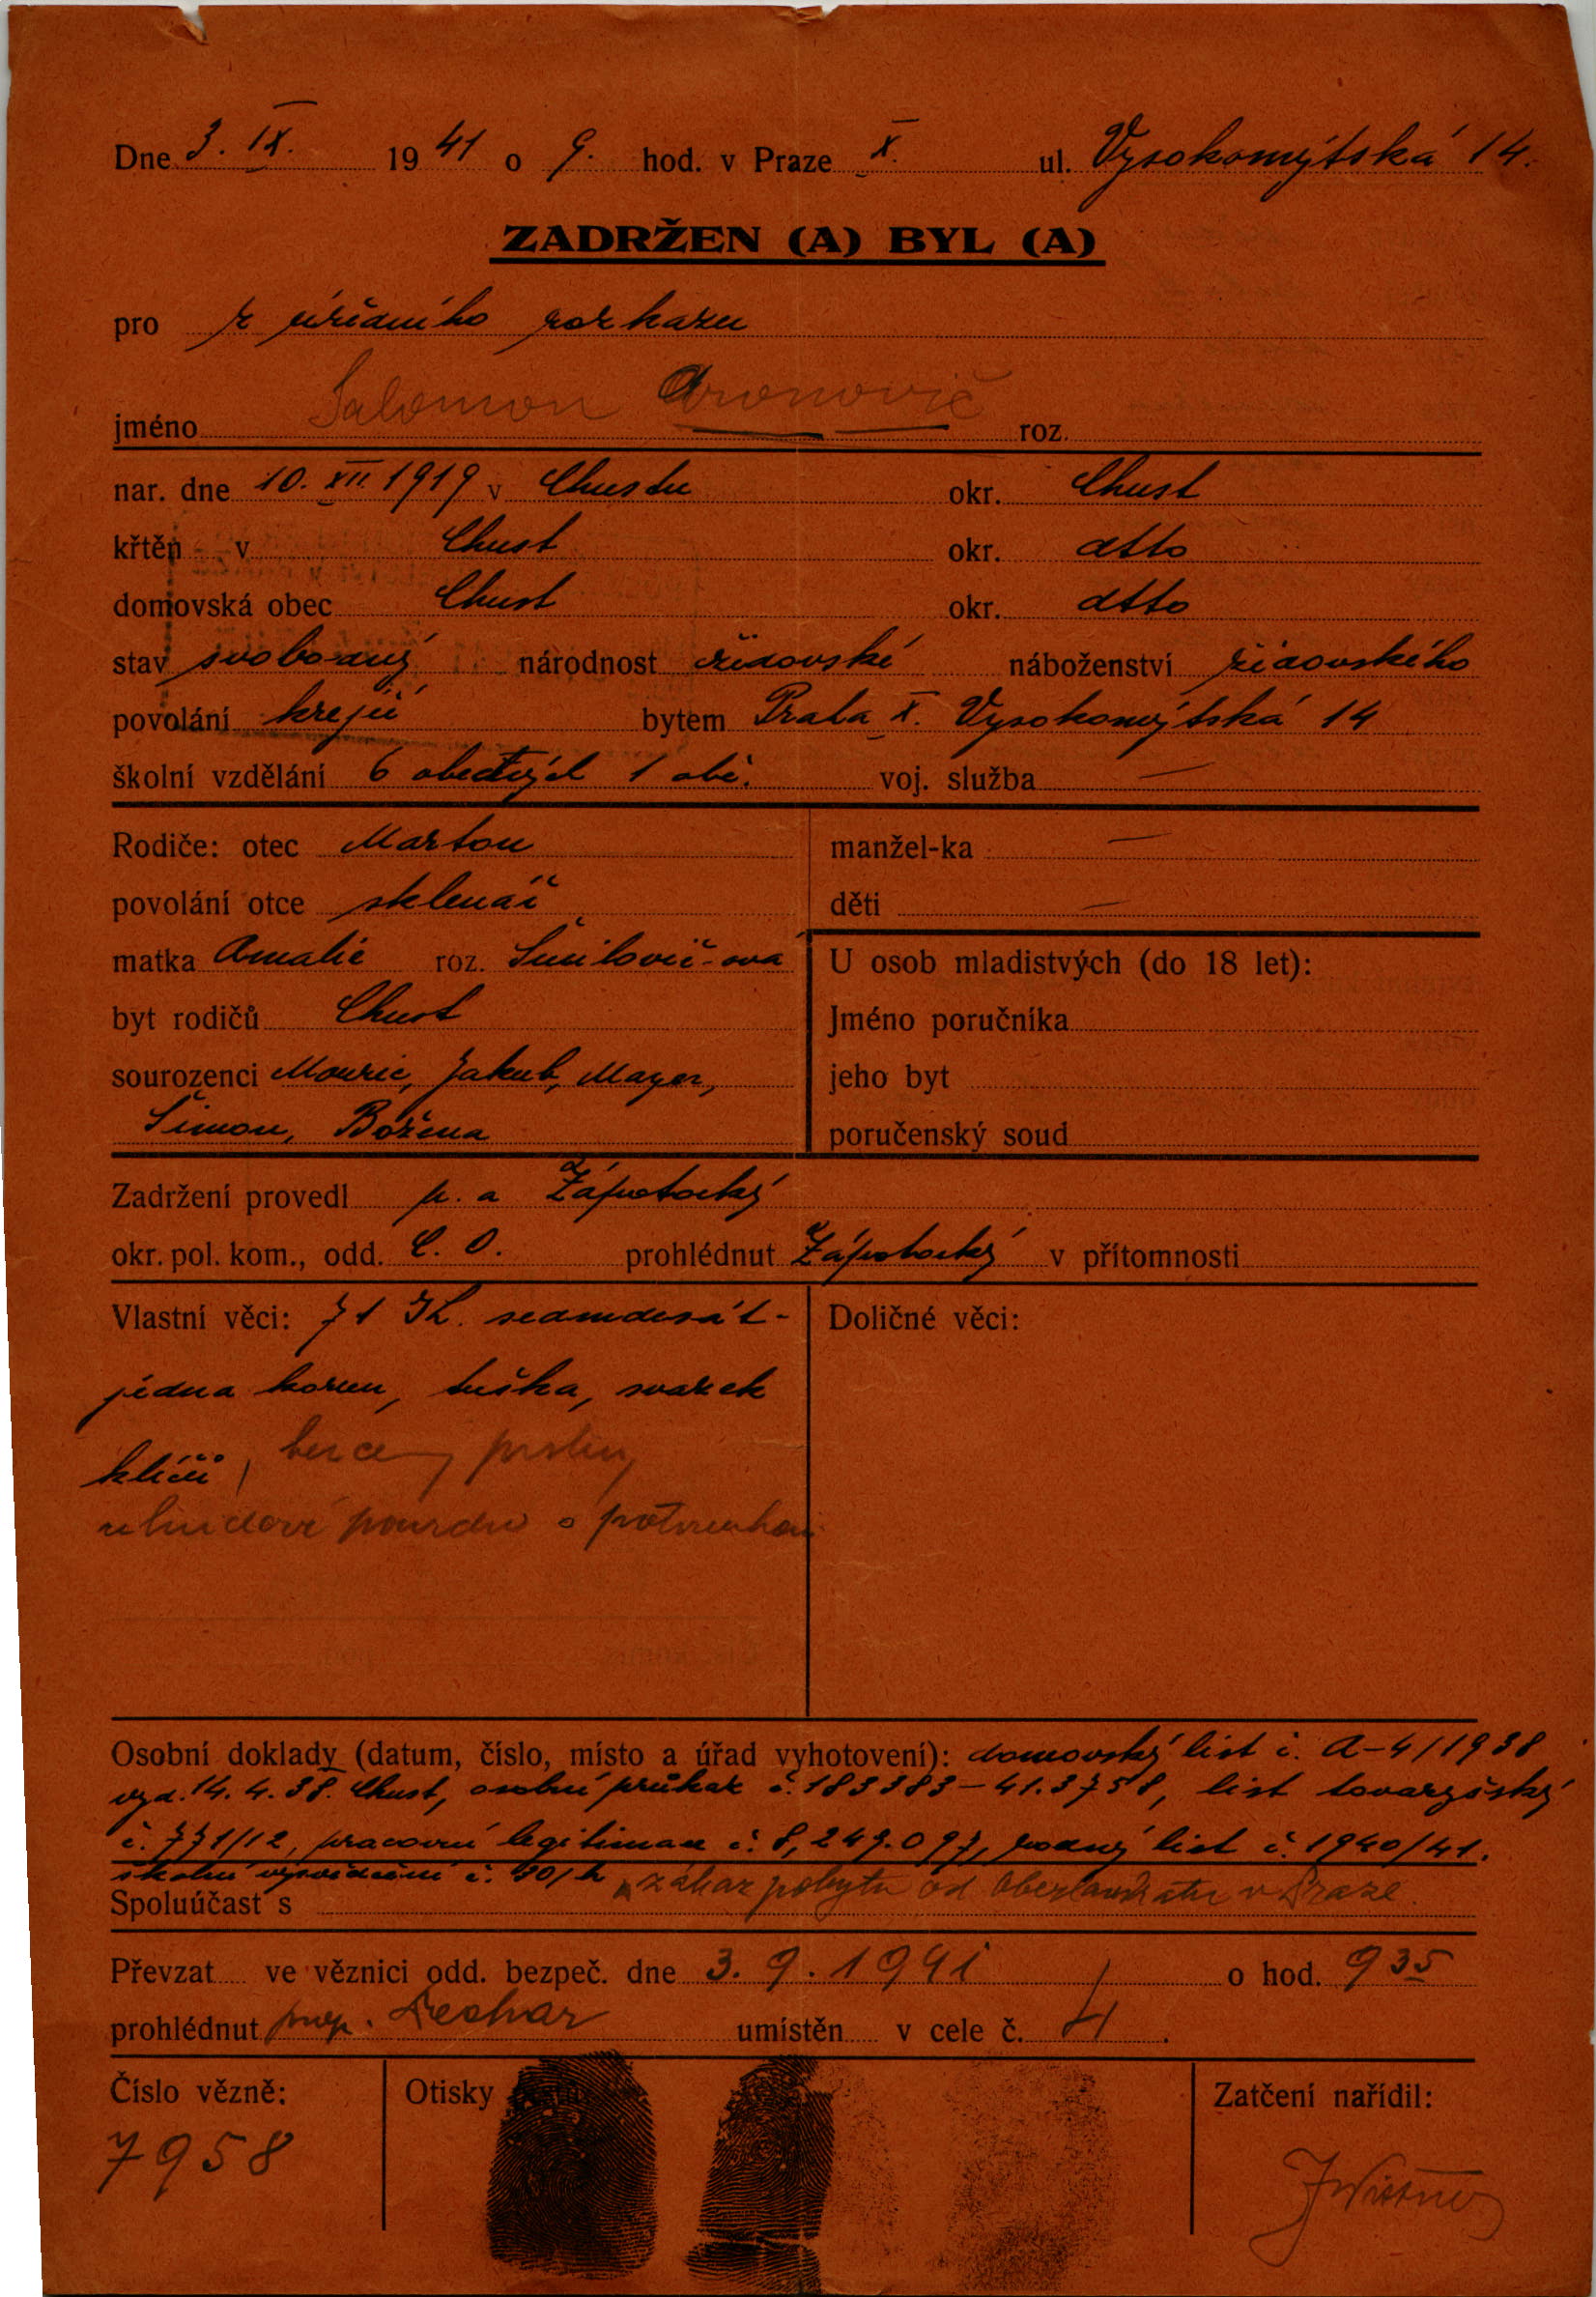 Dne 3. IX. 1941 o 9. hod. v Praze X. ul. Vysokomýtská 14.
ZADRŽEN (A) BYL (A)
pro z úředního rozkazu
jméno Salomon Aronovič roz.
nar. dne 10. XII. 1919 v Chustu okr. Chust
křtěn v Chust okr. dtto
domovská obec Chust okr. dtto
stav svobodný národnost židovské náboženství židovského
povolání krejčí bytem Praha X. Vysokomýtská 14
školní vzdělání 6 1 voj. služba —
Rodiče: otec Marton manžel-ka —
povolání otce sklenář děti —
matka Amalie roz. -ová U osob mladistvých (do 18 let):
byt rodičů Chust Jméno poručníka
sourozenci Mouric, Jakub, Mayer, jeho byt
Šimon, Božena poručenský soud
Zadržení provedl p. a Zápotocký
okr. pol. kom., odd. C. O. prohlédnut Zápotocký v přítomnosti
Vlastní věci: 71 K. sedmdesát- Doličné věci:
jedna korun, tužka, svazek
klíčů, prsten,
pouzdro s potvrzenkou
Osobní doklady (datum, číslo, místo a úřad vyhotovení): domovský list č. A-4/1938
vyd. 14. 4. 38. Chust, osobní průkaz č. 183383-41.3758, list tovaryšský
č. 771/12, pracovní legitimace č. 8, 249.097, rodný list č. 1940/41.
školní vysvědčení č. 30/
Spoluúčast s zákaz pobytu od Oberlandratu v Praze.
Převzat ve věznici odd. bezpeč. dne 3. 9. 1941 o hod. 935
prohlédnut umístěn v cele č. 4.
Číslo vězně: Otisky Zatčení nařídil:
7958